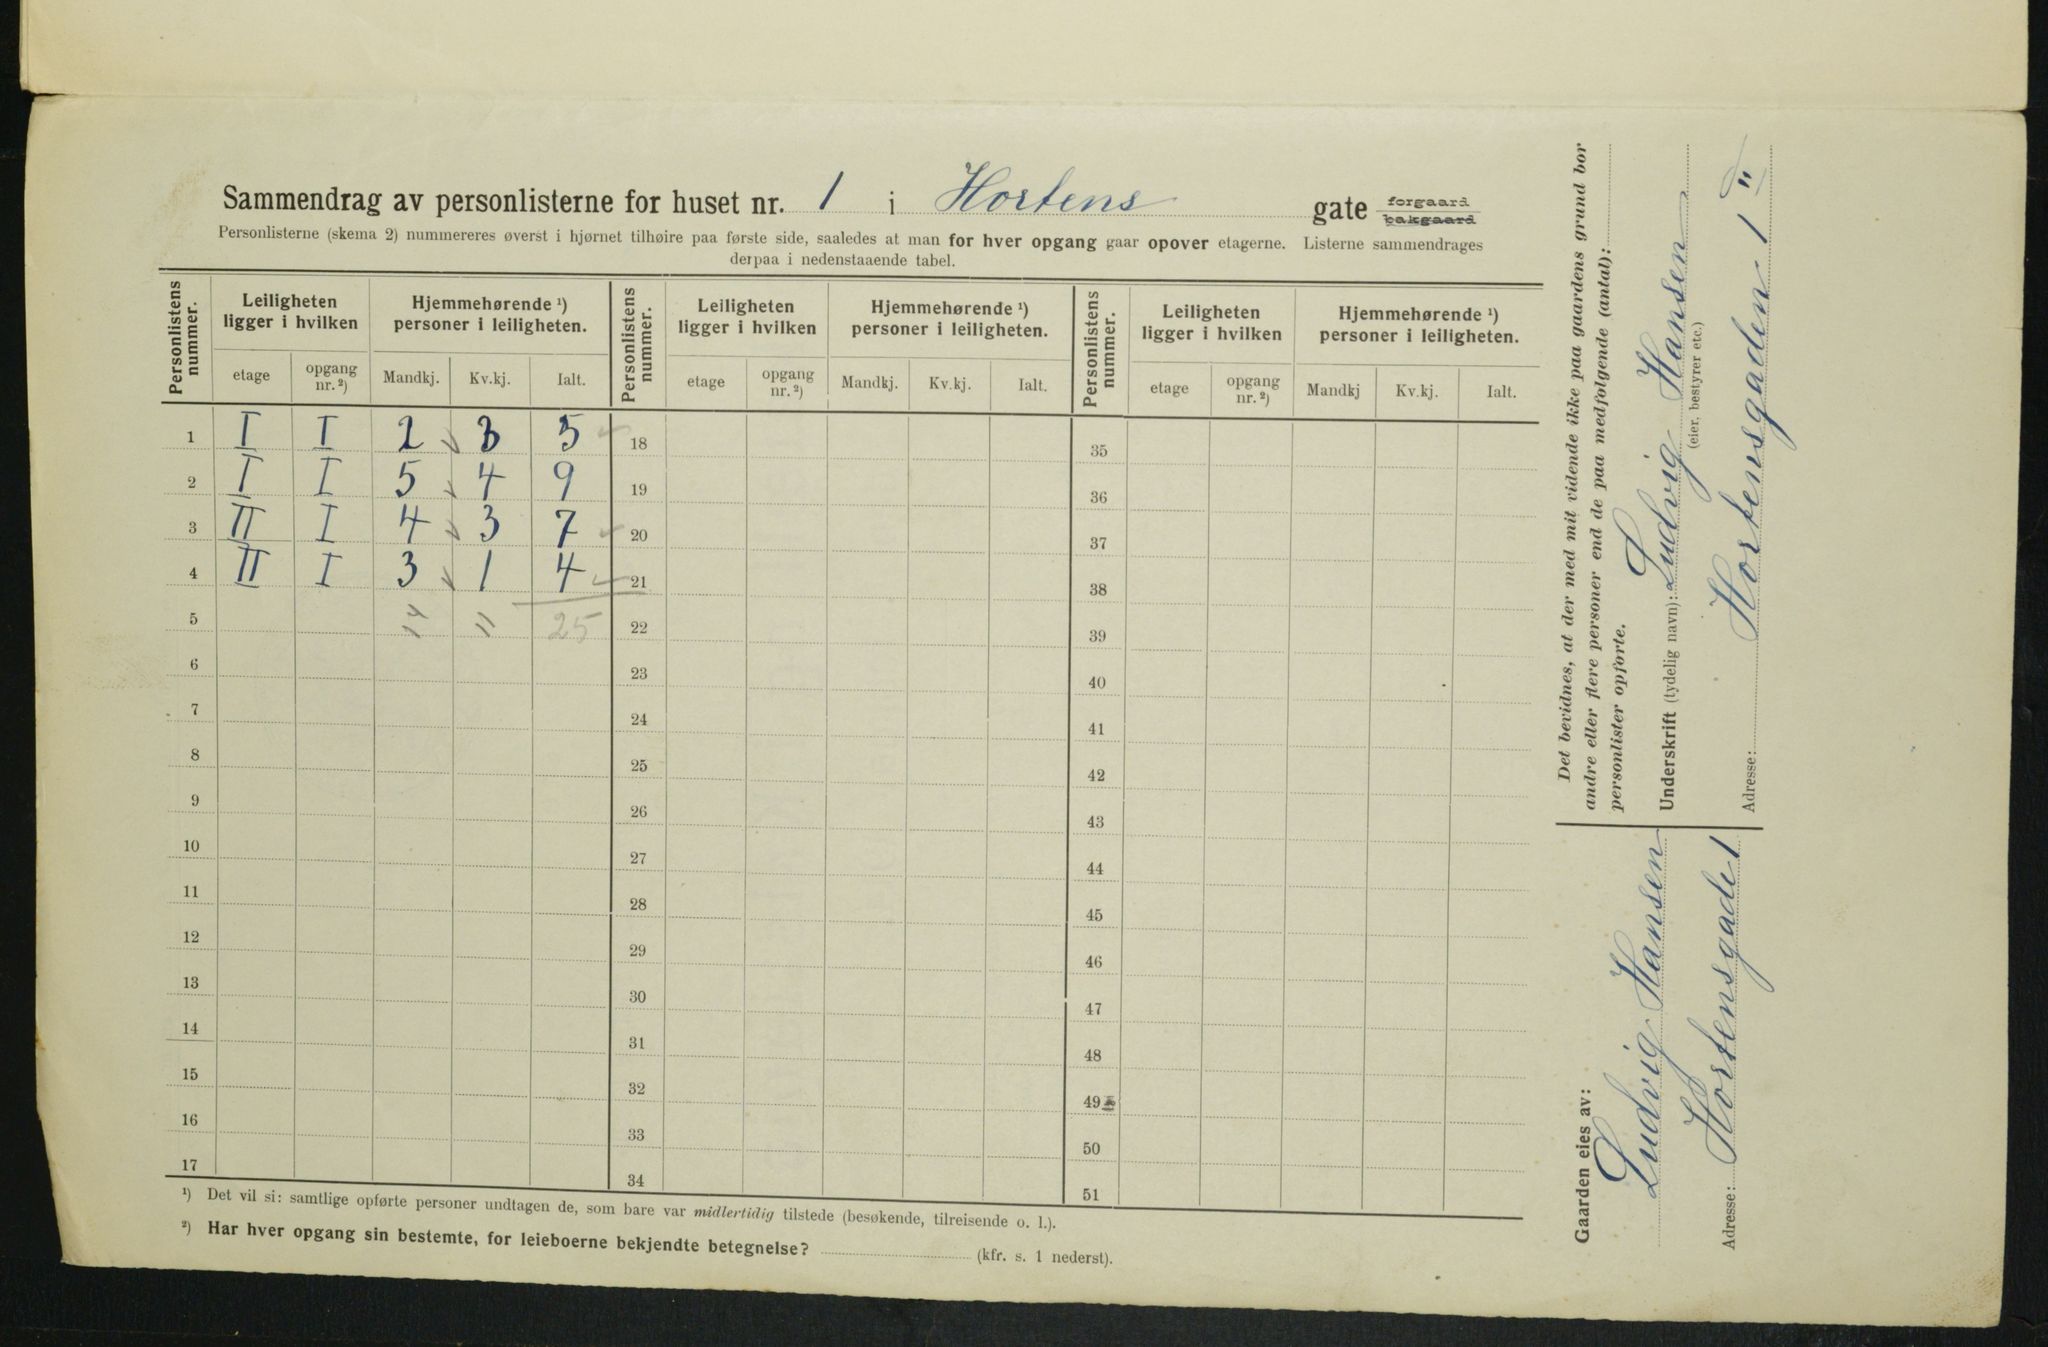 Sammendrag av personlisterne for huset nr. 1 i Hortens gate forgaard bakgaard
Personlisterne (skema 2) nummereres øverst i hjørnet tilhøire paa første side, saaledes at man for hver opgang gaar opover etagerne. Listerne sammendrages
derpaa i nedenstaaende tabel.
Personlistens nummer. Leiligheten ligger i hvilken Hjemmehørende ¹) personer i leiligheten. Personlistens nummer. Leiligheten ligger i hvilken Hjemmehørende ¹) personer i leiligheten. Personlistens nummer. Leiligheten ligger i hvilken Hjemmehørende ¹) personer i leiligheten.
etage opgang nr. ²) Mandkj. Kv.kj. Ialt. etage opgang nr. ²) Mandkj. Kv.kj. Ialt. etage opgang nr. ²) Mandkj Kv.kj. Ialt.
1 I I 2 3 5 18 35
2 I I 5 4 9 19 36
3 II I 4 3 7 20 37
4 II I 3 1 4 21 38
5 14 11 25 22 39
6 23 40
7 24 41
8 25 42
9 26 43
10 27 44
11 28 45
12 29 46
13 30 47
14 31 48
15 32 49
16 33 50
17 34 51
¹) Det vil si: samtlige opførte personer undtagen de, som bare var midlertidig tilstede (besøkende, tilreisende o. l.).
²) Har hver opgang sin bestemte, for leieboerne bekjendte betegnelse? (kfr. s. 1 nederst).
Det bevidnes, at der med mit vidende ikke paa gaardens grund bor
andre eller flere personer end de paa medfølgende (antal):
personlister opførte.
Underskrift (tydelig navn): Ludvig Hansen
(eier, bestyrer etc.)
Adresse: Hortensgaden 1
Gaarden eies av:
Ludvig Hansen
Adresse: Hortensgade 1